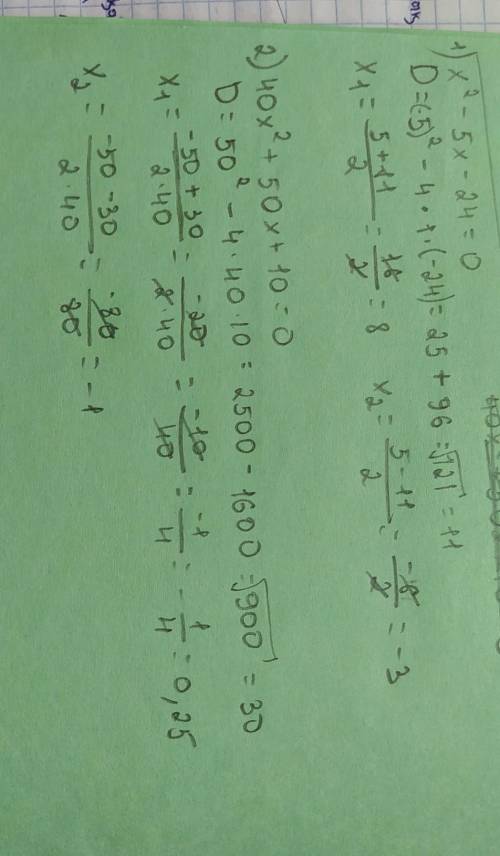 1) x² - 5x - 24 = 0
D = (-5)² - 4·1·(-24) = 25 + 96 = √121 = 11
x₁ = (5+11)/2 = 16/2 = 8   x₂ = (5-11)/2 = -6/2 = -3
2) 40x² + 50x + 10 = 0
D = 50² - 4·40·10 = 2500 - 1600 = √900 = 30
x₁ = (-50+30)/(2·40) = -20/(2·40) = -10/40 = -1/4 = -1/4 = 0,25
x₂ = (-50-30)/(2·40) = -80/80 = -1